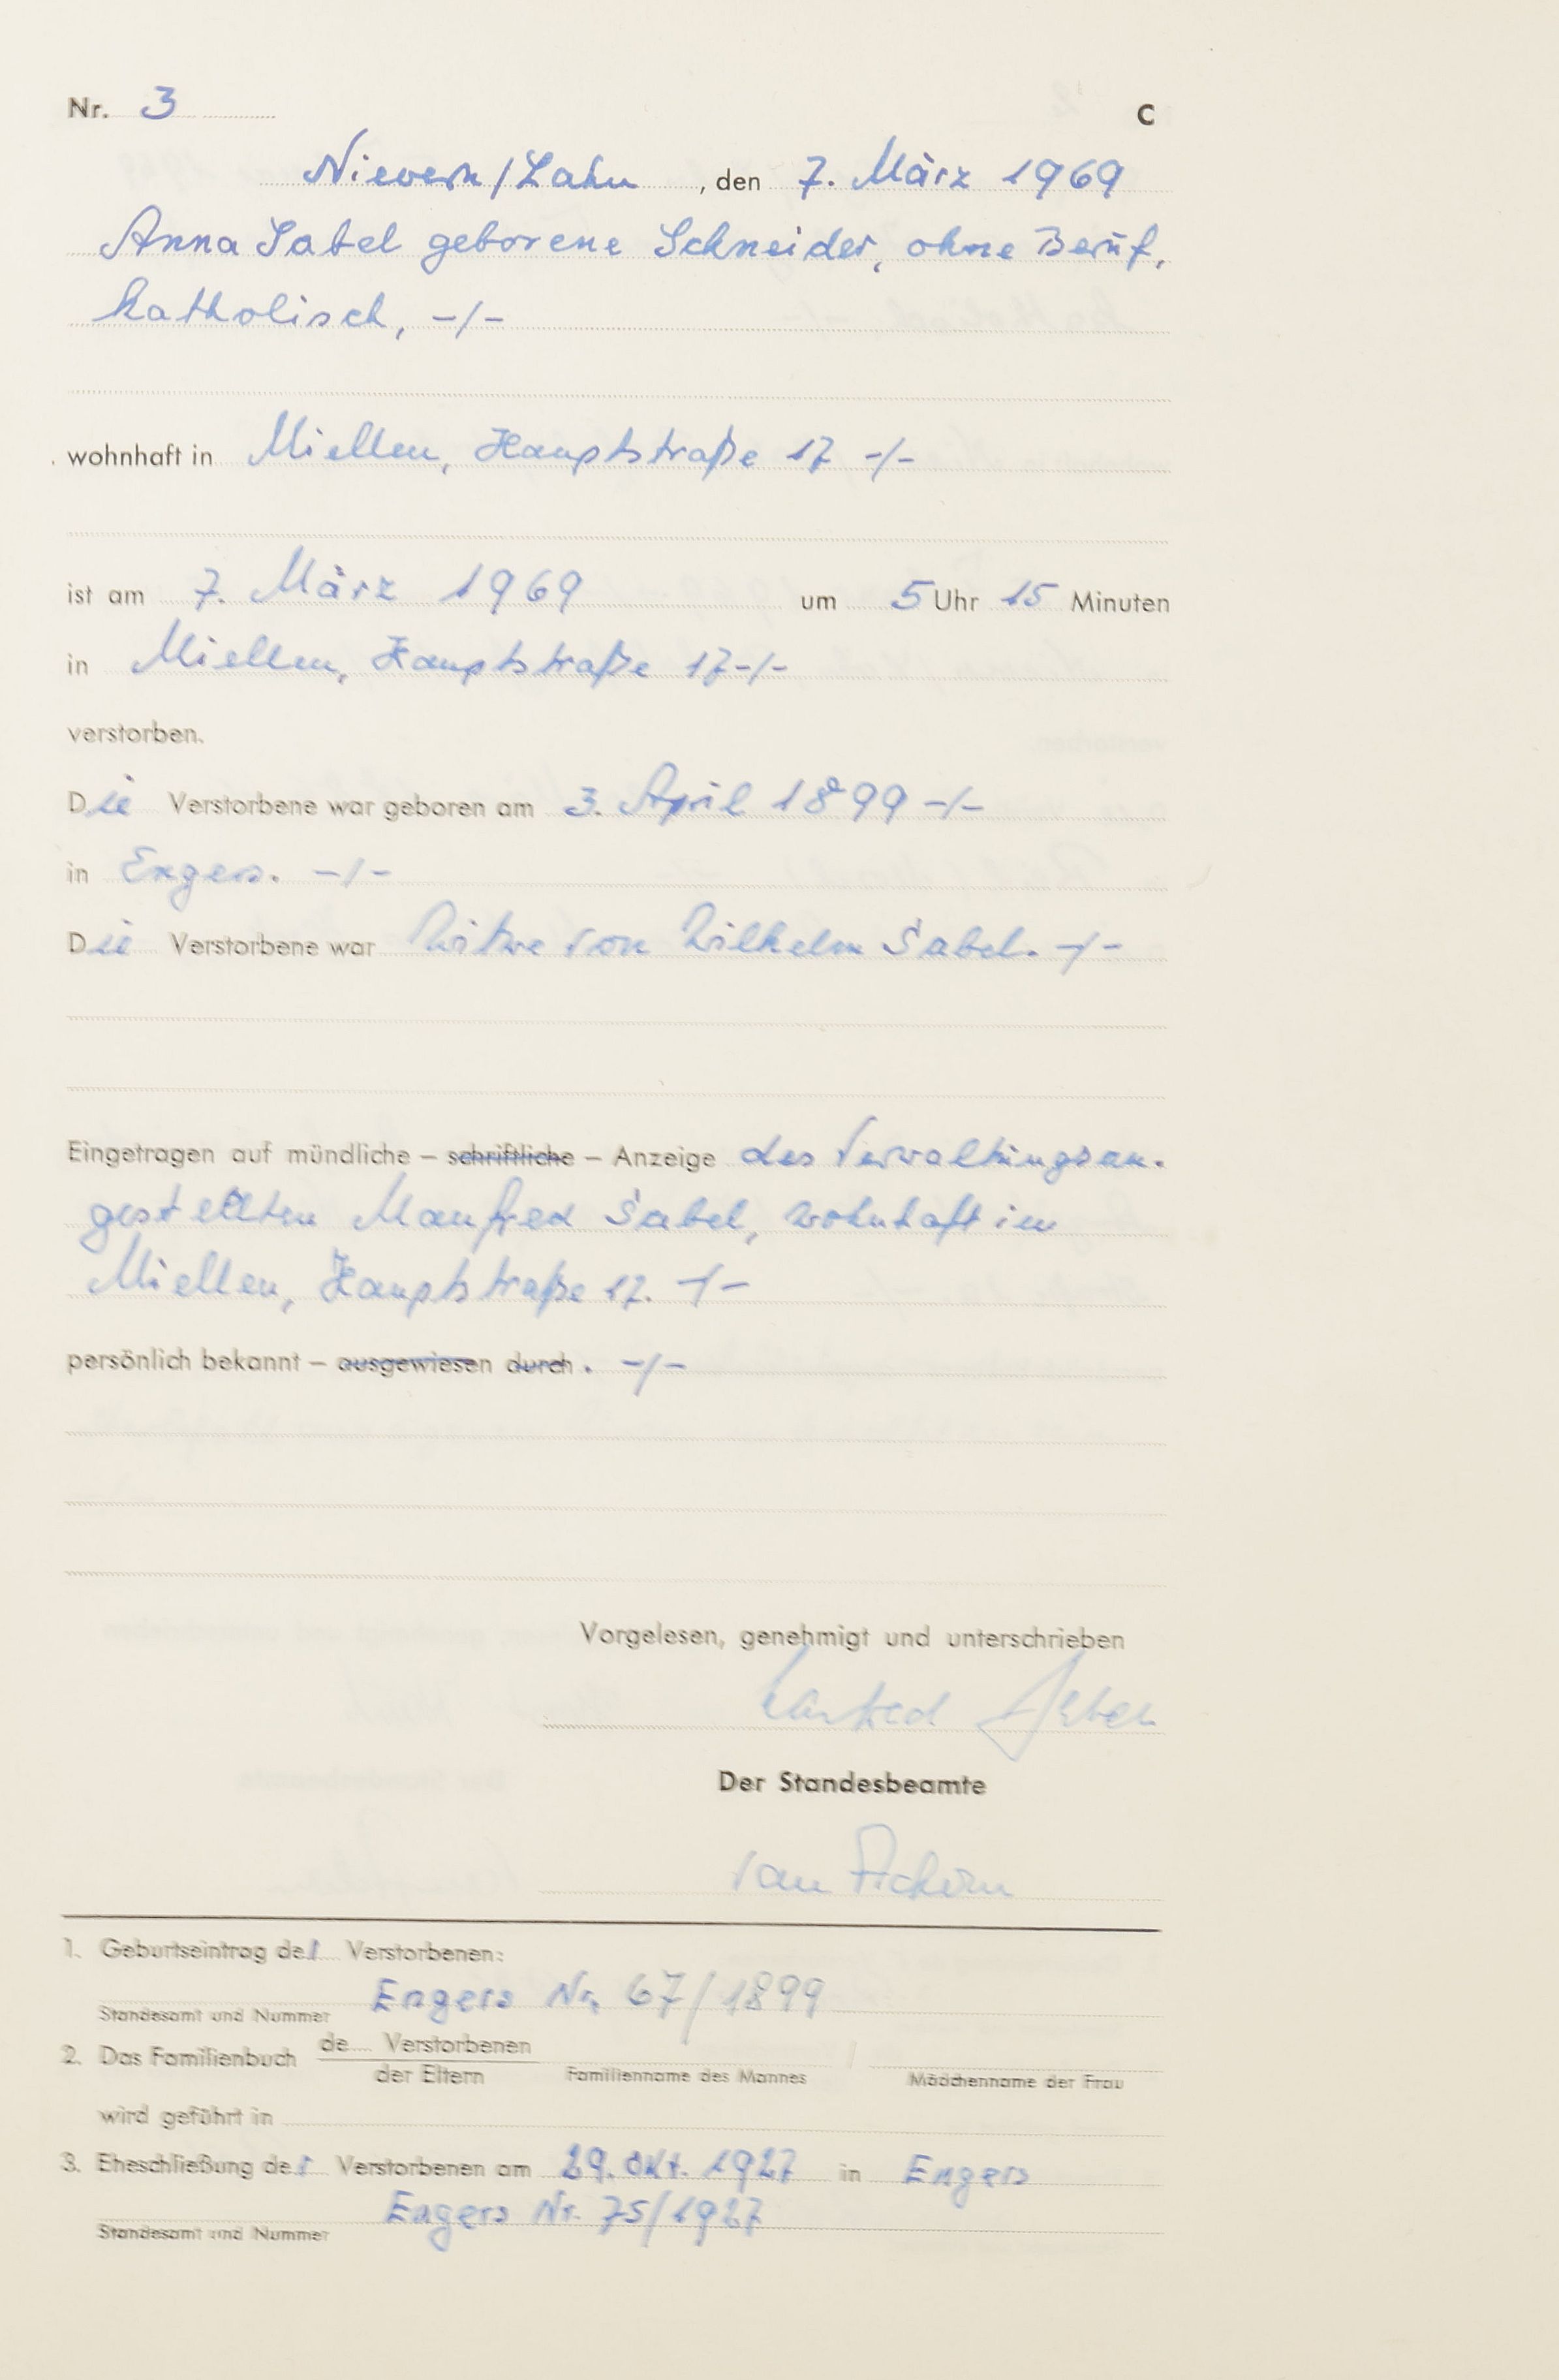 Nr. 3 C
Nievern/Lahn, den 7. März 1969
Anna Sabel geborene Schneider, ohne Beruf,
katholisch, -/-
wohnhaft in Miellen, Hauptstraße 17 -/-
ist am 7. März 1969 um 5 Uhr 15 Minuten
in Miellen, Hauptstraße 17 -/-
verstorben.
Die Verstorbene war geboren am 3. April 1899 -/-
in Engers. -/-
Die Verstorbene war Witwe von Wilhelm Sabel. -/-
Eingetragen auf mündliche – schriftliche – Anzeige des Verwaltungsan-
gestellten Manfred Sabel, wohnhaft in
Miellen, Hauptstraße 17. -/-
persönlich bekannt – ausgewiesen durch . -/-
Vorgelesen, genehmigt und unterschrieben
Manfred Sabel
Der Standesbeamte
van
1. Geburtseintrag der Verstorbenen:
Engers Nr. 67/1899
Standesamt und Nummer
2. Das Familienbuch de Verstorbenen
der Eltern Familienname des Mannes Mädchenname der Frau
wird geführt in
3. Eheschließung der Verstorbenen am 29. Okt. 1927 in Engers
Engers Nr. 75/1927
Standesamt und Nummer